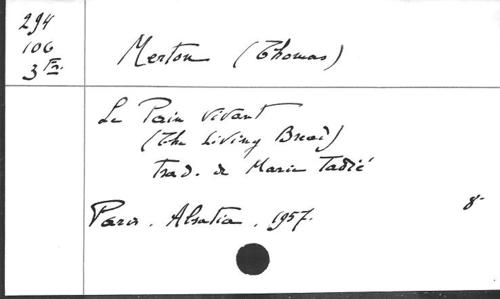 294
106
3 Fr.
Merton (Thomas)
Le Pain vivant
(The Living Bread)
Trad. de Marie Tadié
Paris. Alsatia. 1957.
8-